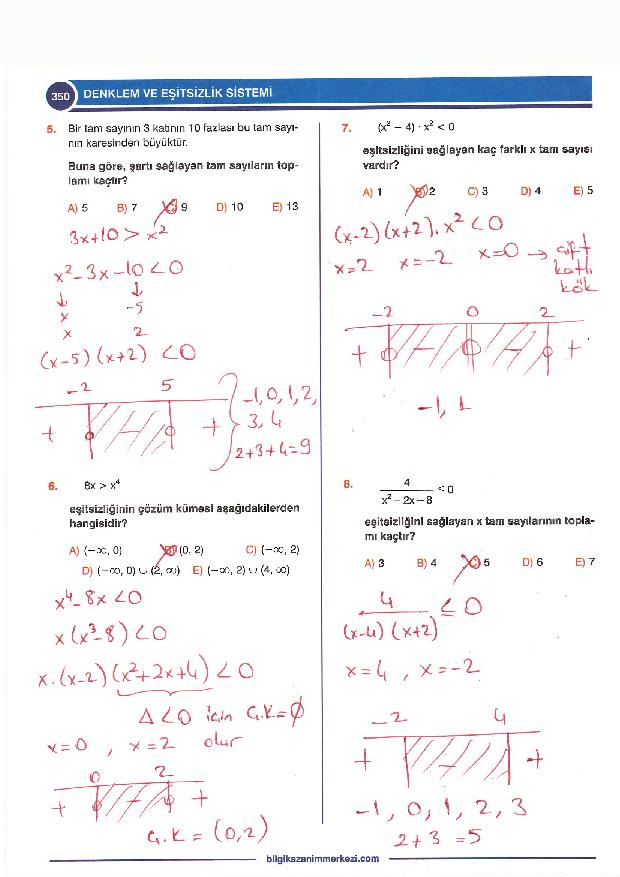 350 DENKLEM VE EŞİTSİZLİK SİSTEMİ
5. Bir tam sayının 3 katının 10 fazlası bu tam sayı-
nın karesinden büyüktür.
Buna göre, şartı sağlayan tam sayıların top-
lamı kaçtır?
A) 5 B) 7 C) 9 D) 10 E) 13
3x+10 > x²
x²-3x-10<0
↓ ↓
x -5
x 2
(x-5)(x+2) <0
-2 5
+ - +
-1, 0, 1, 2,
3, 4
2+3+4=9
6. 8x > x⁴
eşitsizliğinin çözüm kümesi aşağıdakilerden
hangisidir?
A) (−∞, 0) B) (0, 2) C) (−∞, 2)
D) (−∞, 0) ∪ (2, ∞) E) (−∞, 2) ∪ (4, ∞)
x⁴-8x<0
x(x³-8)<0
x.(x-2)(x²+2x+4)<0
Δ<0 için Ç.K=∅
x=0 , x=2 olur
0 2
+ - +
Ç.K = (0,2)
7. (x² − 4) · x² < 0
eşitsizliğini sağlayan kaç farklı x tam sayısı
vardır?
A) 1 B) 2 C) 3 D) 4 E) 5
(x-2)(x+2).x²<0
x=2 x=-2 x=0 → çift
katlı
kök
-2 0 2
+ - - +
-1, 1
8. 4 / (x² − 2x − 8) < 0
eşitsizliğini sağlayan x tam sayılarının topla-
mı kaçtır?
A) 3 B) 4 C) 5 D) 6 E) 7
4 / (x-4)(x+2) ≤ 0
x=4 , x=-2
-2 4
+ - +
-1, 0, 1, 2, 3
2+3 =5
bilgikazanimmerkezi.com